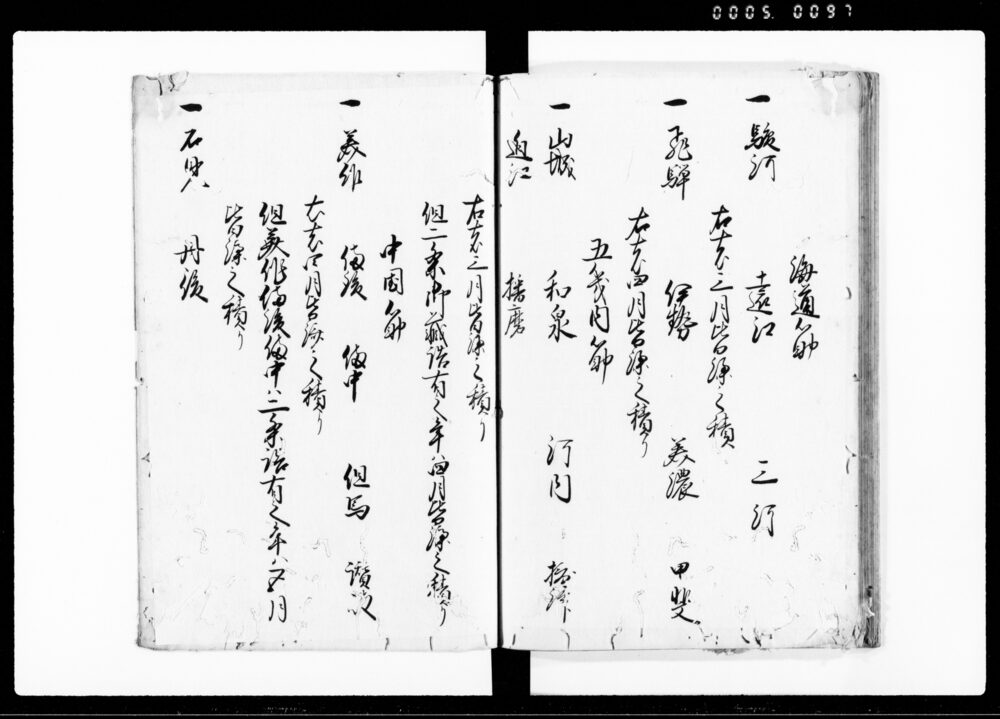 0005. 0097
海道筋
一 駿河 遠江 三河
右者三月皆済之積
一 飛騨 伊勢 美濃 甲斐
右者四月皆済之積り
五畿内筋
一 山城 和泉 河内 摂津
近江 播磨
右者三月皆済之積り
但二条御蔵詰有之年者四月皆済之積り
中国筋
一 美作 備後 備中 但馬 讃岐
右者四月皆済之積り
但美作備後備中ハ二条詰有之年ハ五月
皆済之積り
一 石見 丹後